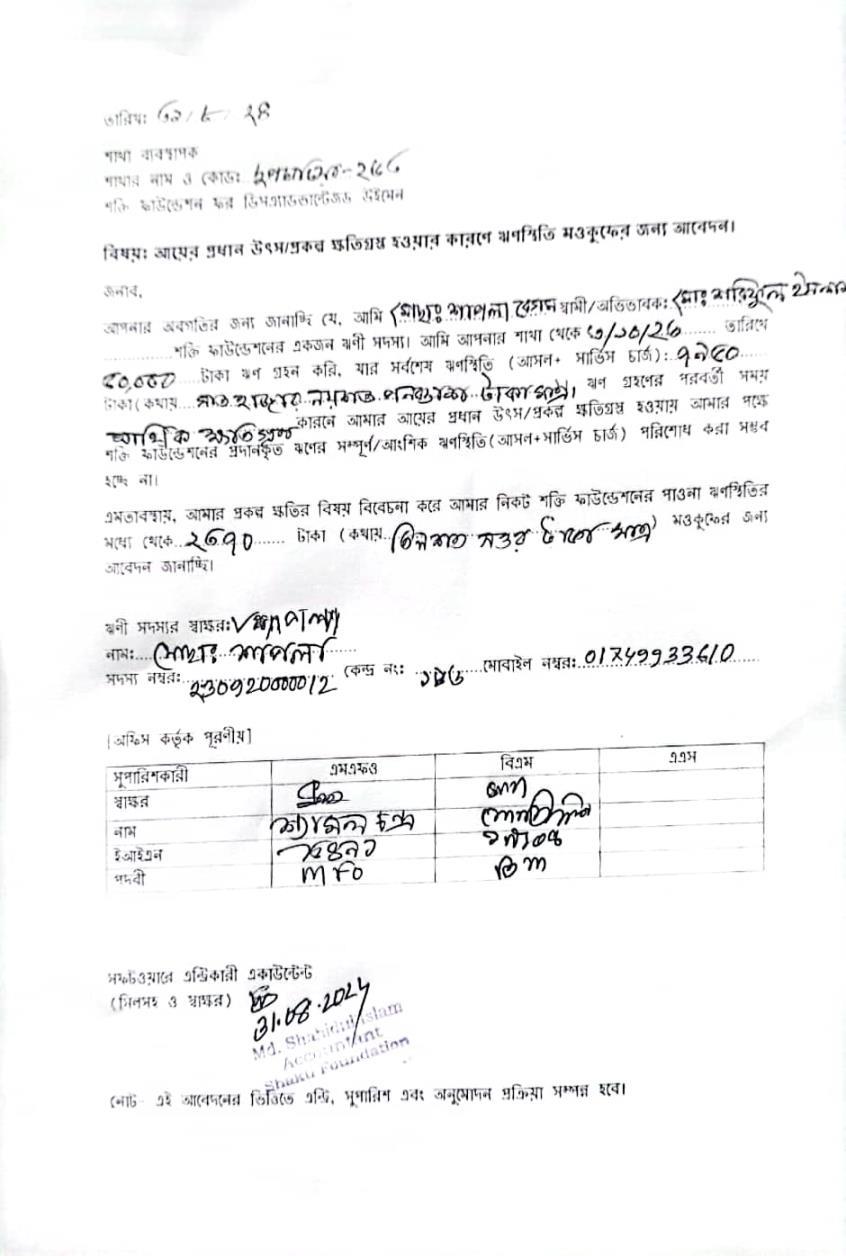 তারিখঃ ৩১/৮/২৪
শাখা ব্যবস্থাপক
শাখার নাম ও কোডঃ
শক্তি ফাউন্ডেশন ফর ডিসএ্যাডভান্টেজড উইমেন
বিষয়ঃ আয়ের প্রধান উৎস/প্রকল্প ক্ষতিগ্রস্থ হওয়ার কারণে ঋণস্থিতি মওকুফের জন্য আবেদন।
জনাব,
আপনার অবগতির জন্য জানাচ্ছি যে, আমি মোছাঃ শাপলা বেগম স্বামী/অভিভাবক: মোঃ শরিফুল ইসলাম
শক্তি ফাউন্ডেশনের একজন ঋণী সদস্য। আমি আপনার শাখা থেকে তারিখে
৫০,০০০ টাকা ঋণ গ্রহন করি, যার সর্বশেষ ঋণস্থিতি (আসল+ সার্ভিস চার্জ): ৭৯৫০
টাকা (কথায় সাত হাজার নয়শত পনঞ্চাশ টাকা মাত্র। ঋণ গ্রহণের পরবর্তী সময়
আর্থিক ক্ষতিগ্রস্ত কারনে আমার আয়ের প্রধান উৎস/প্রকল্প ক্ষতিগ্রস্থ হওয়ায় আমার পক্ষে
শক্তি ফাউন্ডেশনের প্রদানকৃত ঋণের সম্পূর্ণ/আংশিক ঋণস্থিতি (আসল+সার্ভিস চার্জ) পরিশোধ করা সম্ভব
হচ্ছে না।
এমতাবস্থায়, আমার প্রকল্প ক্ষতির বিষয় বিবেচনা করে আমার নিকট শক্তি ফাউন্ডেশনের পাওনা ঋণস্থিতির
মধ্যে থেকে টাকা (কথায় সত্তর টাকা মাত্র) মওকুফের জন্য
আবেদন জানাচ্ছি।
ঋণী সদস্যর স্বাক্ষর: শাপলা
নাম: মোছাঃ শাপলা
সদস্য নম্বর: 230920000012 কেন্দ্র নং: মোবাইল নম্বর: 01749933610
[অফিস কর্তৃক পূরণীয়]
সুপারিশকারী এমএফও বিএম এএস
স্বাক্ষর
নাম শ্যামল চন্দ্র
ইআইএন
পদবী MFO BM
সফটওয়ারে এন্ট্রিকারী একাউন্টেন্ট
(সিলসহ ও স্বাক্ষর)
31.08.2024
Md. Shahidul Islam
Accountant
Shakti Foundation
নোট- এই আবেদনের ভিত্তিতে এন্ট্রি, সুপারিশ এবং অনুমোদন প্রক্রিয়া সম্পন্ন হবে।